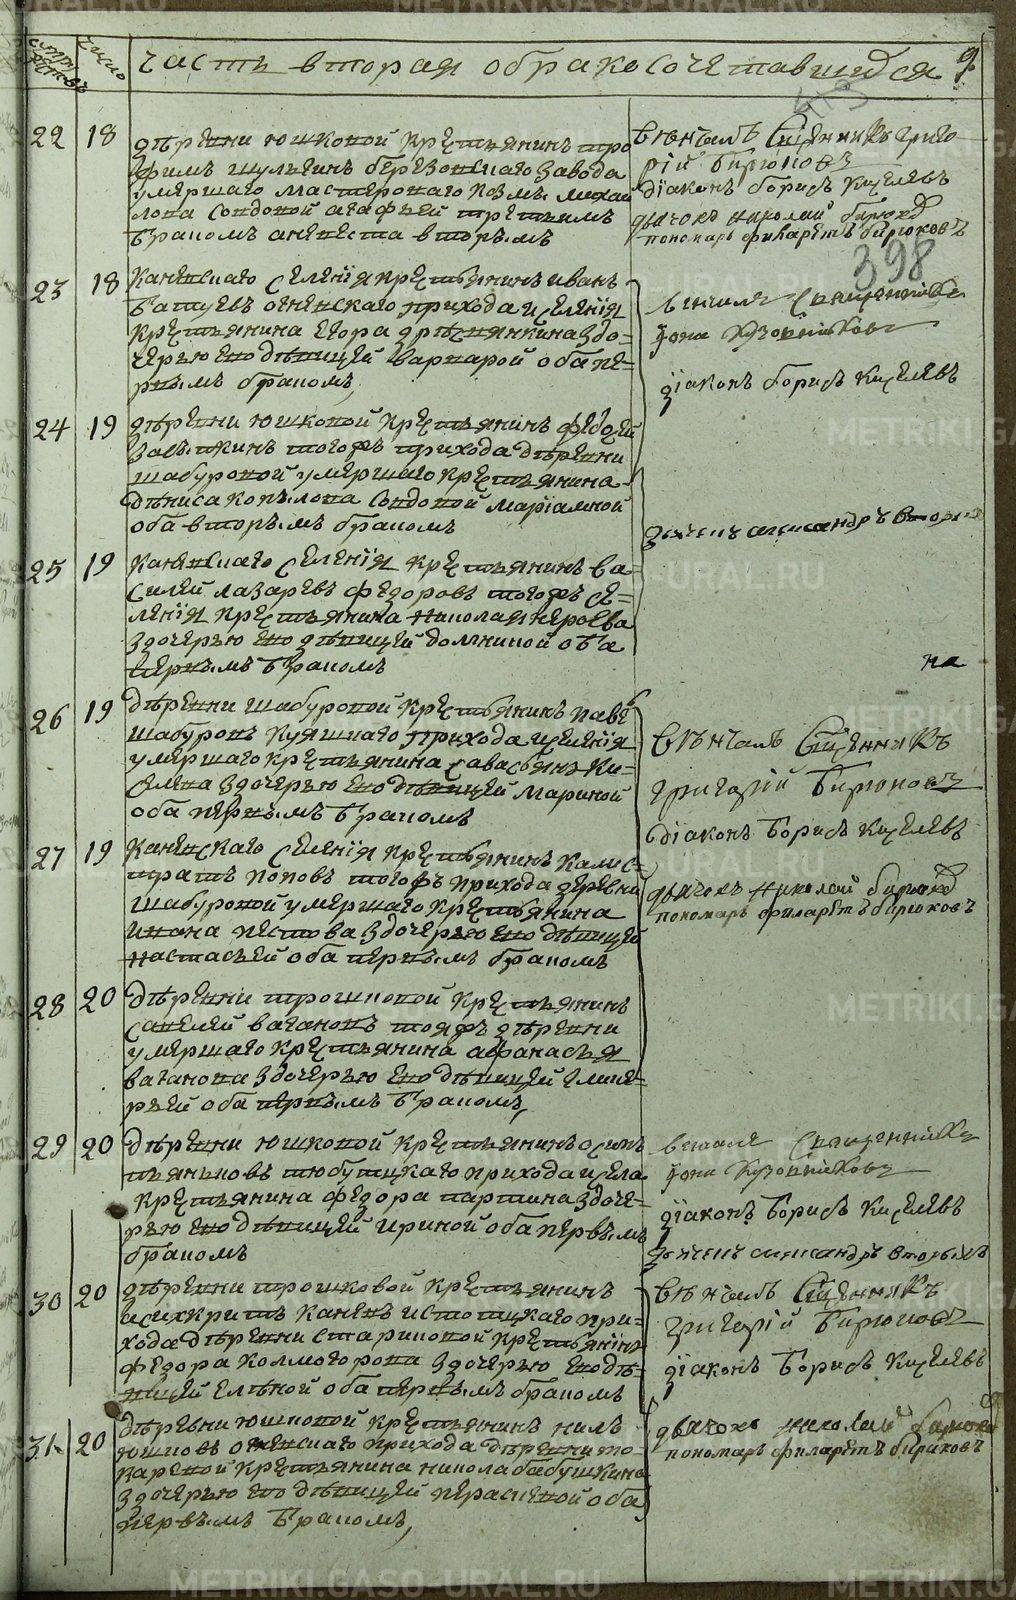 часть вторая о бракосочетавшихся 9
число
398
22 18 дѣревни юшковой крестьянинъ тро
фимъ шульгинъ березовскаго завода
умершаго мастероваго козмы михаи
лова вдовой агафьей третьимъ
бракомъ а невеста вторымъ
вѣнчалъ священникъ григо
рій бирюковъ
діаконъ борисъ киселевъ
дьячокъ николай бирюков
пономарь филаретъ бирюковъ
23 18 каневскаго селенія крестьянинъ иванъ
батуевъ огневскаго прихода и селенія
крестьянина егора дрѣсвянкина здо-
черью ево дѣвицей варварой оба пе-
рвымъ бракомъ
венчалъ священникъ
іона кузовниковъ
діаконъ борисъ киселевъ
24 19 дѣревни юшковой крестьянинъ федосей
тогожъ прихода дѣревни
шабуровой умершаго крестьянина
дѣниса копылова вдовой маріамной
оба вторымъ бракомъ
дьячекъ александръ вторых
25 19 каневскаго селенія крестьянинъ ва-
силей лазаревъ федоровъ тогожъ се-
ленія крестьянина николая
здочерью ево дѣвицей домниной оба
первымъ бракомъ
на
26 19 дѣревни шабуровой крестьянинъ павел
шабуровъ куяшкаго прихода и селенія
умершаго крестьянина савастьяна ки-
селева здочерью ево дѣвицей мариной
оба первымъ бракомъ
вѣнчалъ священникъ
григорій бирюковъ
діаконъ борисъ киселевъ
дьячокъ николай бирюков
пономарь филаретъ бирюковъ
27 19 каневскаго селенія крестьянинъ калис-
тратъ поповъ тогожъ прихода деревни
шабуровой умершаго крестьянина
ивана пестова здочерью ево дѣвицей
настасьей оба первымъ бракомъ
28 20 дѣревни трошковой крестьянинъ
савелей вагановъ тояжъ дѣревни
умершаго крестьянина афанасья
ваганова здочерью ево дѣвицей гликѣ-
рьей оба первымъ бракомъ
29 20 дѣревни юшковой крестьянинъ осипъ
пьянковъ тюбутцкаго прихода и села
крестьянина федора партина здоче-
рью ево дѣвицей ириной оба первымъ
бракомъ
венчалъ священникъ
іона кузовниковъ
діаконъ борисъ киселевъ
дьячекъ александръ вторыхъ
30 20 дѣревни трошковой крестьянинъ
асихкритъ каневъ истопцкаго при-
хода дѣревни стариковой крестьянинъ
федора колмогорова здочерью ево дѣ-
вицей елѣной оба первымъ бракомъ
вѣнчалъ священникъ
григорій бирюковъ
діаконъ борисъ киселевъ
31 20 дѣревни юшковой крестьянинъ нилъ
юшковъ огневскаго прихода дѣревни то-
каревой крестьянина никола бабушкина
здочерью ево дѣвицей парасковой оба
первымъ бракомъ
дьячокъ николай бирюков
пономарь филаретъ бирюковъ
METRIKI.GASO-URAL.RU